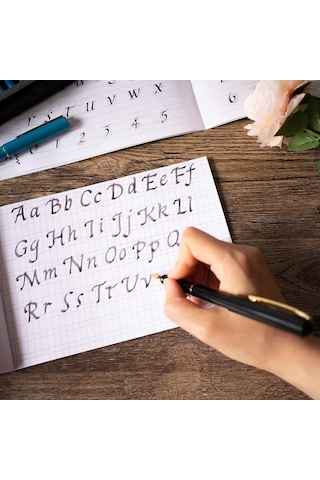 S T U V W X
1 2 3 4 5
6
Aa Bb Cc Dd Ee Ff
Gg Hh Ii Jj Kk Ll
Mm Nn Oo Pp Q
Rr Ss Tt Uv